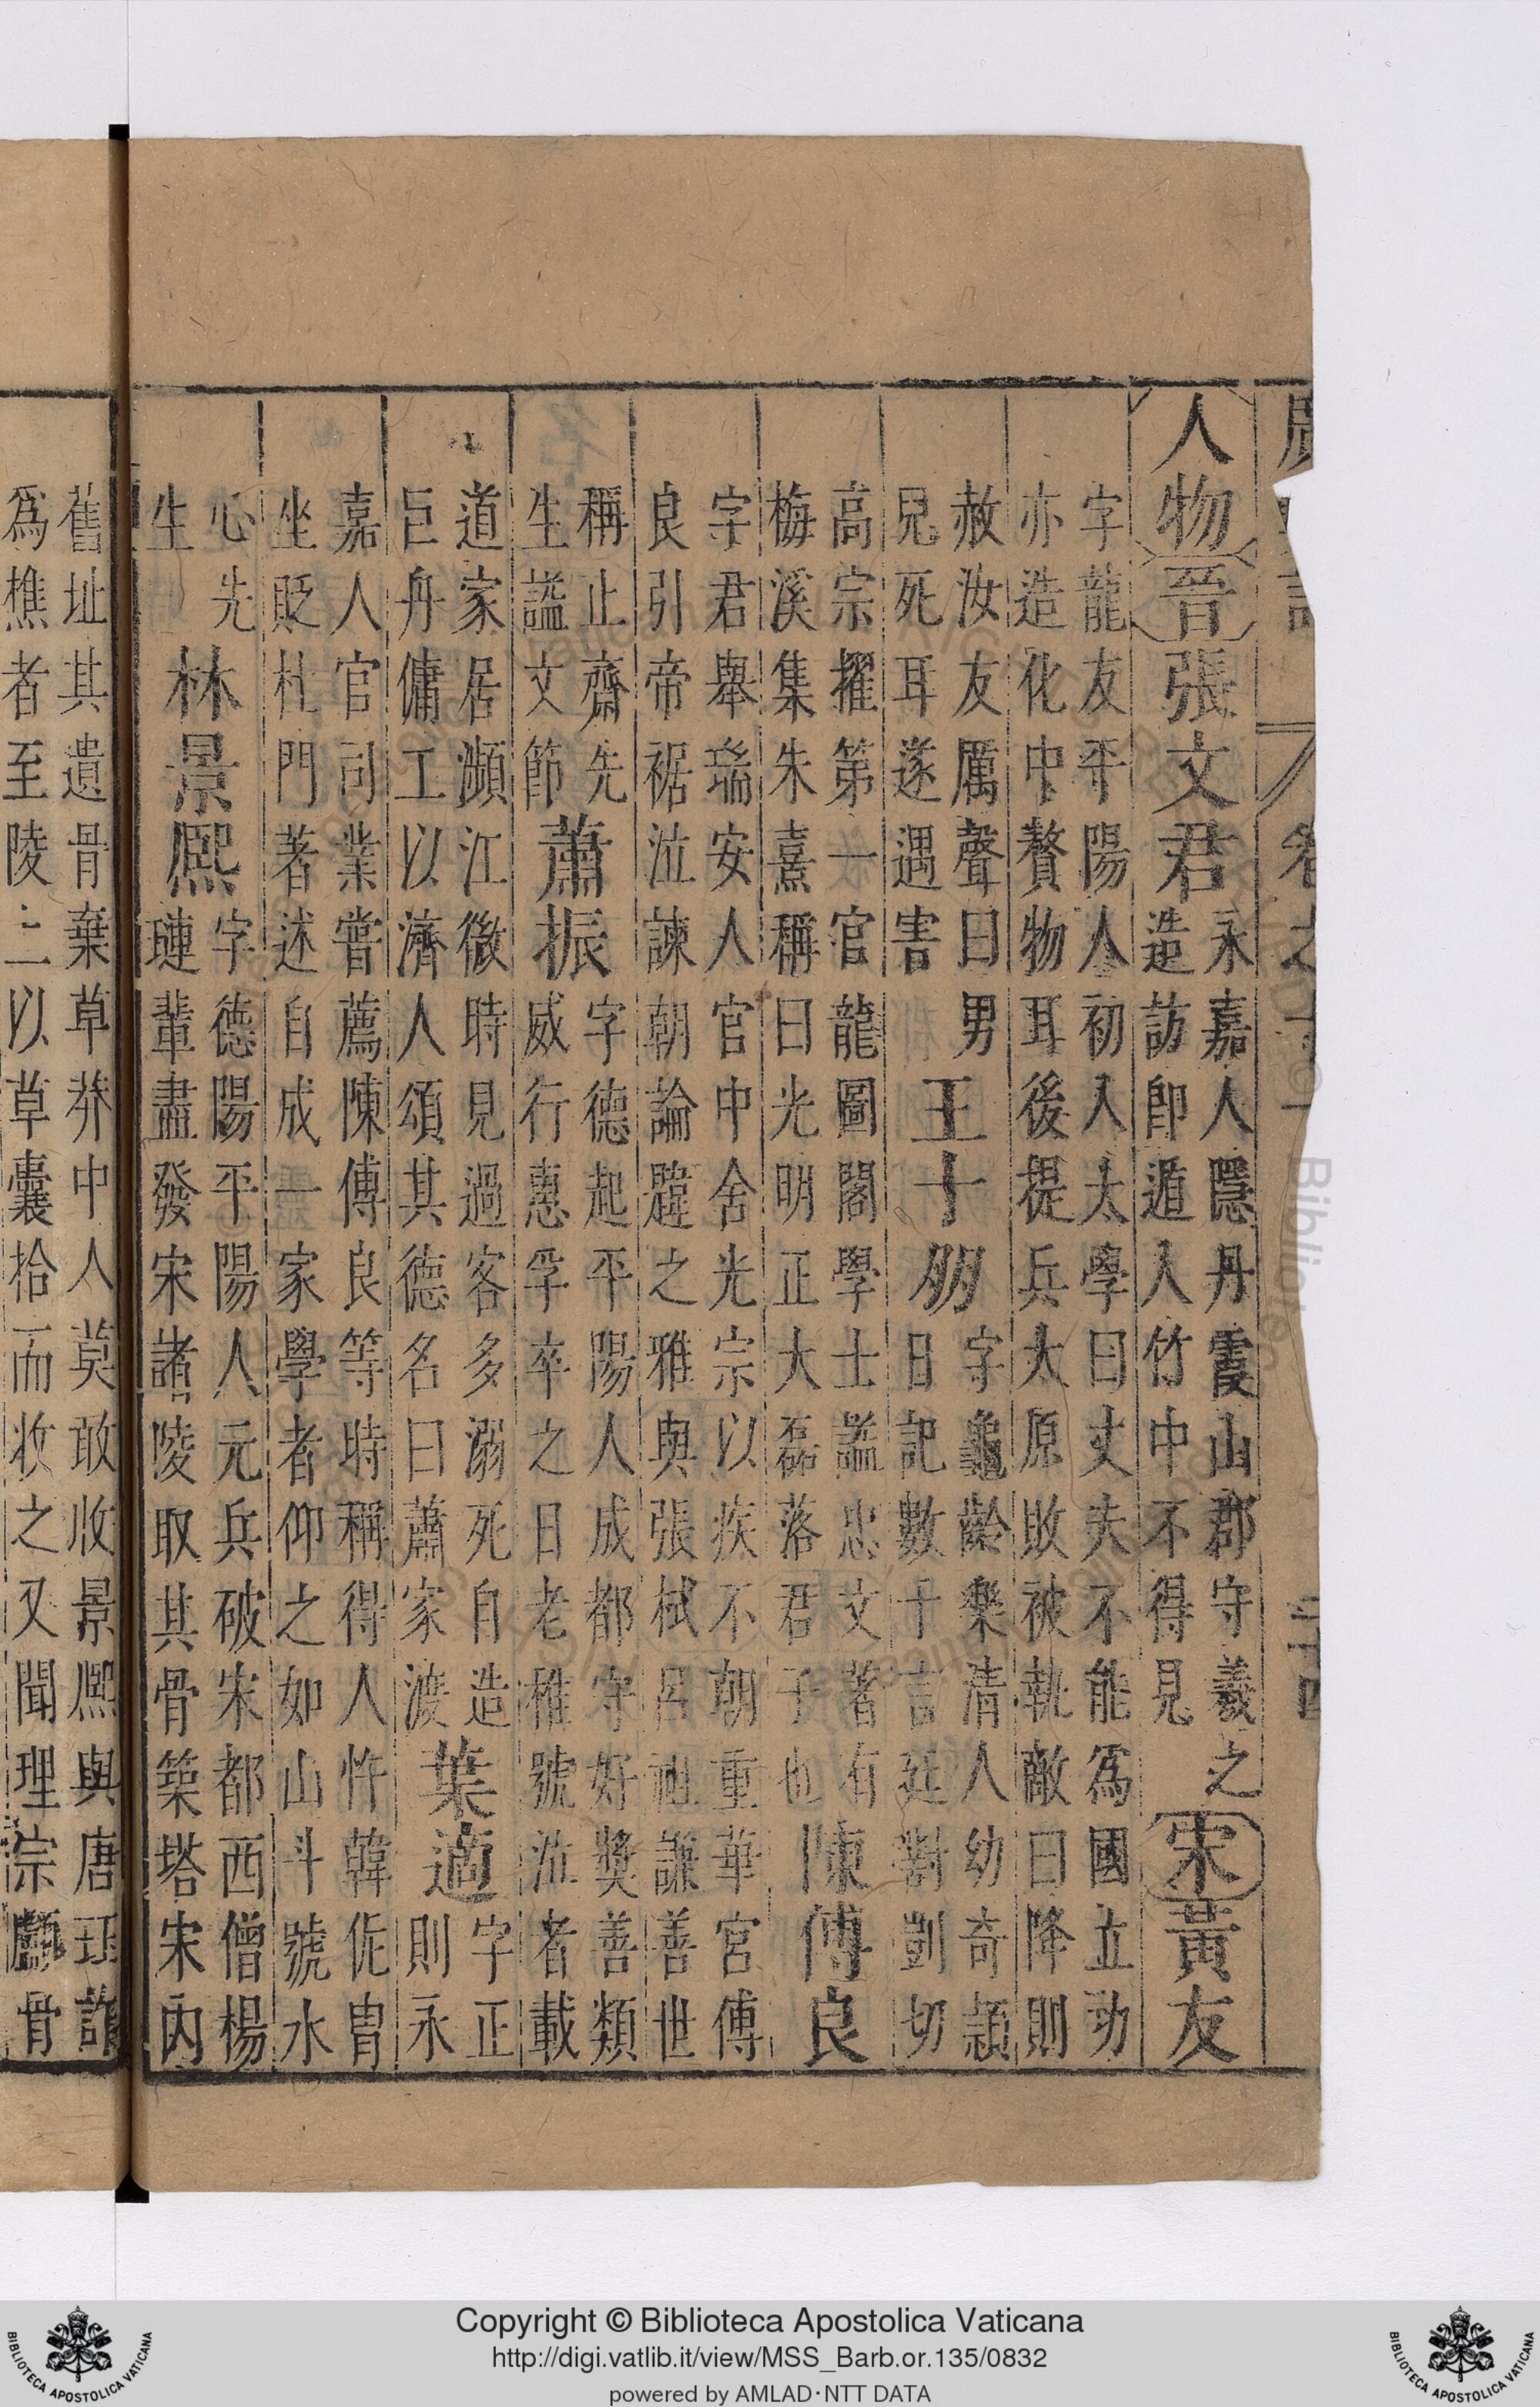 卷之
人物 晉 張文君
永嘉人隱丹霞山郡守羲之
造訪即遁入竹中不得見
宋 黃友
字龍友平陽人初入太學曰丈夫不能為國立功
亦造化中贅物耳後提兵太原敗被執敵曰降則
赦汝友厲聲曰男
兒死耳遂遇害
王十朋
字龜齡樂清人幼奇穎
日記數千言廷對剴切
高宗擢第一官龍圖閣學士謚忠文著有
梅溪集朱熹稱曰光明正大磊落君子也
陳傅良
字君舉瑞安人官中舍光宗以疾不朝重華宮傅
良引帝裾泣諫朝論韙之雅與張栻呂祖謙善世
稱止齋先
生謚文節
蕭振
字德起平陽人成都守好獎善類
威行惠孚卒之日老稚號泣者載
道家居瀕江微時見過客多溺死自造
巨舟傭工以濟人頌其德名曰蕭家渡
葉適
字正
則永
嘉人官司業嘗薦陳傅良等時稱得人忤韓侂胄
坐貶杜門著述自成一家學者仰之如山斗號水
心先
生
林景熈
字德陽平陽人元兵破宋都西僧楊
璉輩盡發宋諸陵取其骨築塔宋內
舊址其遺骨棄草莽中人莫敢收景熈與唐珏詐
為樵者至陵上以草囊拾而收之又聞理宗顱骨
Copyright © Biblioteca Apostolica Vaticana
http://digi.vatlib.it/view/MSS_Barb.or.135/0832
powered by AMLAD·NTT DATA
BIBLIOTECA APOSTOLICA VATICANA
BIBLIOTECA APOSTOLICA VATICANA